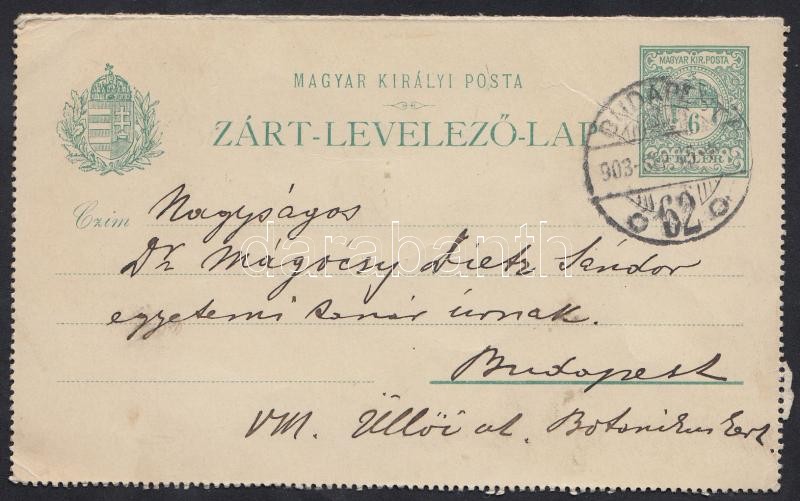 MAGYAR KIR. POSTA
MAGYAR KIRÁLYI POSTA
ZÁRT-LEVELEZŐ-LAP
6
FILLÉR
BUDAPEST
903
62
Czim
Nagyságos
Dr Mágócsy Dietz Sándor
egyetemi tanár úrnak.
Budapest
VIII. Üllői ut. Botanikus kert.
darabanth